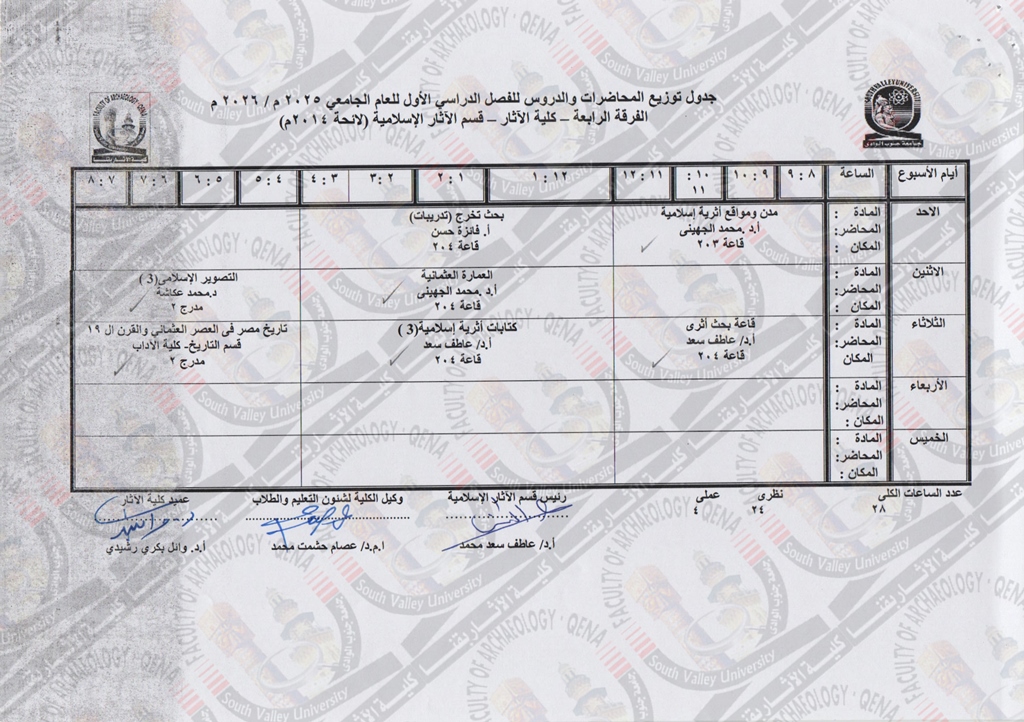 جدول توزيع المحاضرات والدروس للفصل الدراسي الأول للعام الجامعي ٢٠٢٥ م / ٢٠٢٦ م
الفرقة الرابعة – كلية الآثار – قسم الآثار الإسلامية (لائحة ٢٠١٤م)
FACULTY OF ARCHAEOLOGY · QENA
جامعة جنوب الوادى
أيام الأسبوع الساعة ٨ : ٩ ٩ : ١٠ ١٠ : ١١ ١١ : ١٢ ١٢ : ١ ١ : ٢ ٢ : ٣ ٣ : ٤ ٤ : ٥ ٥ : ٦ ٦ : ٧ ٧ : ٨
الاحد
المادة :
المحاضر:
المكان :
مدن ومواقع أثرية إسلامية
أ.د .محمد الجهينى
قاعة ٢٠٣
بحث تخرج (تدريبات)
أ. فائزة حسن
قاعة ٢٠٤
الاثنين
المادة :
المحاضر:
المكان :
العمارة العثمانية
أ.د .محمد الجهينى
قاعة ٢٠٤
التصوير الإسلامى(3 )
د.محمد عكاشة
مدرج ٢
الثلاثاء
المادة :
المحاضر:
المكان
قاعة بحث أثرى
أ.د/ عاطف سعد
قاعة ٢٠٤
كتابات أثرية إسلامية(3 )
أ.د/ عاطف سعد
قاعة ٢٠٤
تاريخ مصر فى العصر العثمانى والقرن ال ١٩
قسم التاريخ- كلية الآداب
مدرج ٢
الأربعاء
المادة :
المحاضر:
المكان :
الخميس
المادة :
المحاضر:
المكان :
عدد الساعات الكلى نظرى عملى
٢٨ ٢٤ ٤
رئيس قسم الآثار الإسلامية
أ.د/ عاطف سعد محمد
وكيل الكلية لشئون التعليم والطلاب
ا.م.د/ عصام حشمت محمد
عميد كلية الآثار
أ.د. وائل بكري رشيدي
FACULTY OF ARCHAEOLOGY · QENA
South Valley University
كلية الآثار بقنا